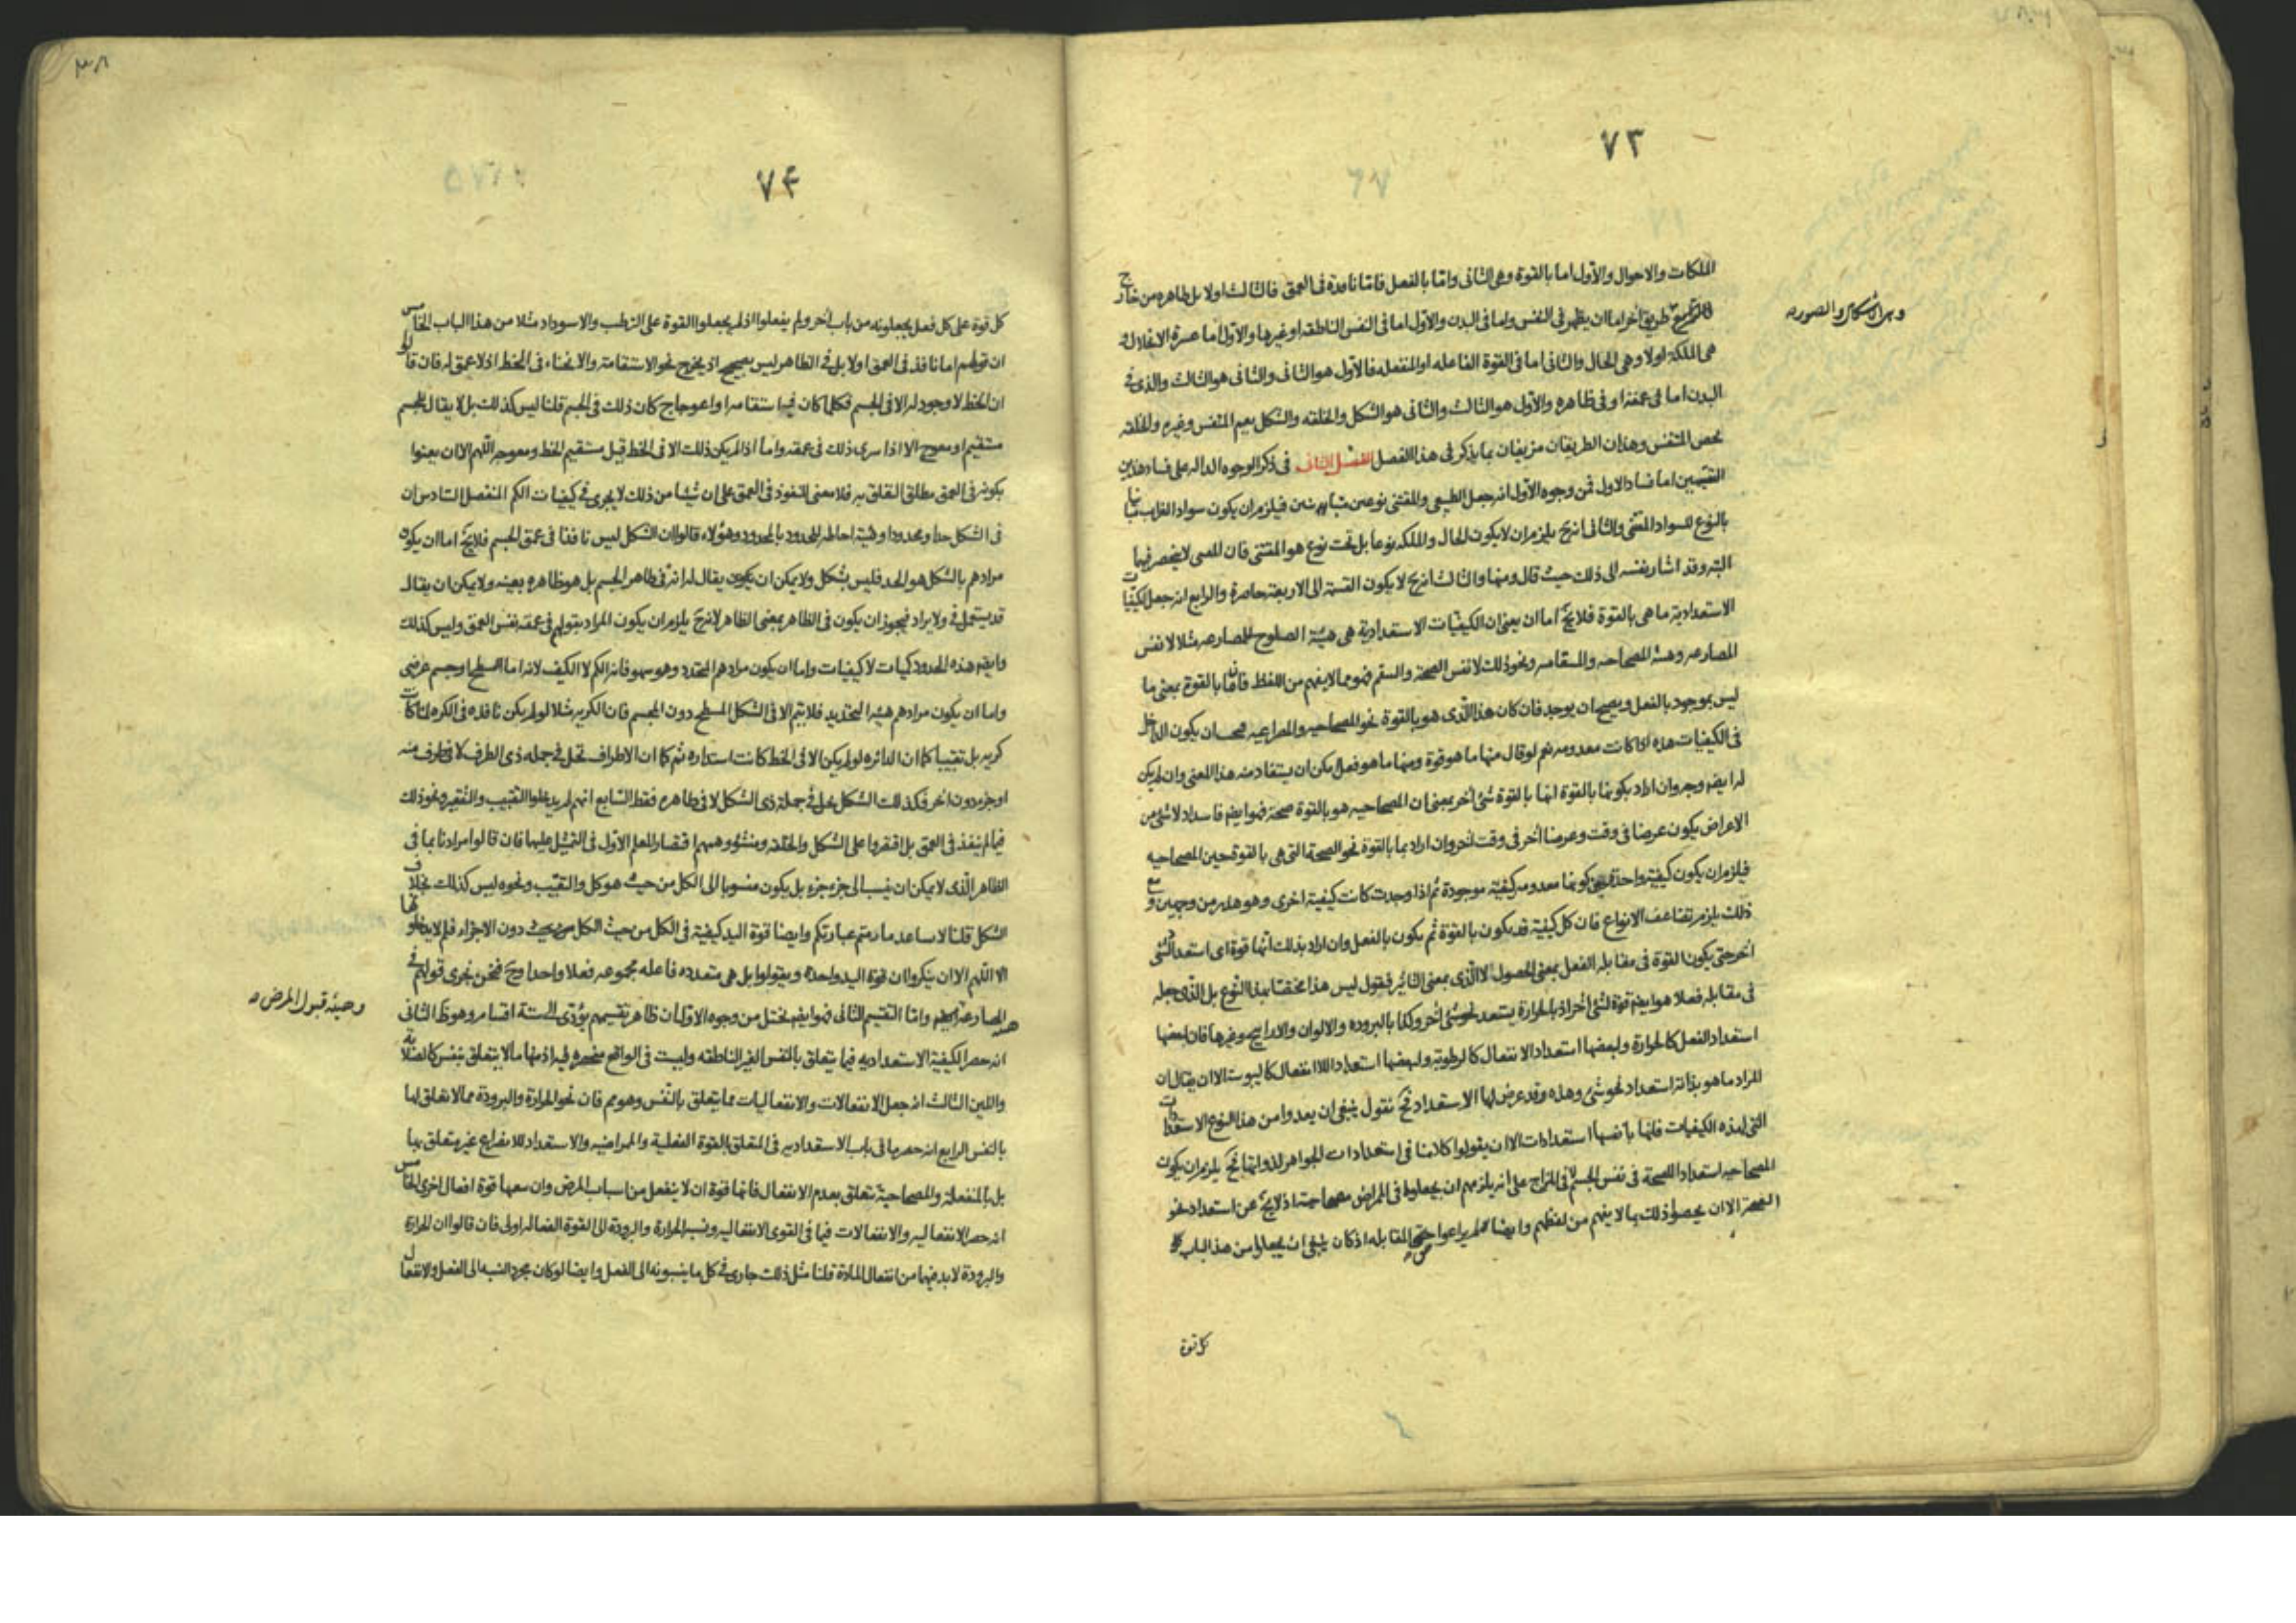 ٧٣
الملكات والاحوال والاول اما بالقوة وهى الثانى واما بالفعل فاما نافذة فى العمق فالثالث اولا بل ظاهره من خارج
طريق آخر اما ان يظهر فى النفس واما فى البدن والاول اما فى النفس الناطقه او غيرها والاول اما عسرة الانفلال و
هى الملكة اولا وهى الحال والثانى اما فى القوة الفاعله او المنفعله فالاول هو الثانى والثانى هو الثالث والذى فى
البدن اما فى عمقه او فى ظاهره والاول هو الثالث والثانى هو الشكل والخلقه والشكل يعم المتنفس وغيره والخلقه
يخص المتنفس وهذان الطريقان مزيفان بما يذكر فى هذا الفصل الفصل الثانى فى ذكر الوجوه الداله على فساد هذين
التقسيمين اما فساد الاول فمن وجوه الاول انه جعل الطبيعى والمقتنى نوعين متباينين فيلزم ان يكون سواد الغراب مباينا
بالنوع للسواد المقتنى والثانى انه ح يلزم ان لا يكون الحال والملكه نوعا بل تحت نوع هو المقتنى فان المقتنى لا ينحصر فيها
البته وقد اشار بنفسه الى ذلك حيث قال ومنها والثالث انه ح لا يكون القسمة الى الاربعة حاصرة والرابع انه جعل الكيفيات
الاستعدادية ما هى بالقوة فلا يخ اما ان يعنى ان الكيفيات الاستعدادية هى هيئة الصلوح للمصارعه مثلا لا نفس
المصارعه وهيئة المصحاحيه والمسقاميه ونحو ذلك لا نفس الصحة والسقم فهو مما لا يفهم من اللفظ فان ما بالقوة بمعنى ما
ليس بموجود بالفعل ويصح ان يوجد فان كان هذا الذى هو بالقوة نحو المصحاحيه والمصارعيه فيجب ان يكون الداخل
فى الكيفيات هذه اذا كانت معدومه نعم لو قال منها ما هو قوة ومنها ما هو فعل يمكن ان يستفاد منه هذا المعنى وان لم يكن
له ايضا وجه وان اراد بكونها بالقوة انها بالقوة شئ آخر بمعنى ان المصحاحيه هو بالقوة صحة فهو ايضا فاسد اذ لا شئ من
الاعراض يكون عرضا فى وقت وعرضا آخر فى وقت آخر وان اراد بما بالقوة نحو الصحة التى هى بالقوة حين المصحاحيه
فيلزم ان يكون كيفية واحدة حين كونها معدومه كيفية موجودة ثم اذا وجدت كانت كيفية اخرى وهو هذر من وجهين ومع
ذلك يلزم تضاعف الانواع فان كل كيفية قد يكون بالقوة ثم يكون بالفعل وان اراد بذلك انها قوة اى استعداد لشئ
آخر حتى يكون القوة فى مقابله الفعل بمعنى الحصول لا الذى بمعنى التاثير فنقول ليس هذا مختصا بهذا النوع بل الذى جعله
فى مقابله فعلا هو ايضا قوة لشئ آخر اذ بالحرارة يستعد لشئ آخر وكذا بالبروده والالوان والاراييح وغيرها فان لبعضها
استعداد الفعل كالحرارة ولبعضها استعداد الانفعال كالرطوبة ولبعضها استعداد اللاانفعال كاليبوسة الا ان يقال ان
المراد ما هو بذاته استعداد نحو شئ وهذه وقد عرض لها الاستعداد فح نقول ينبغى ان يعدوا من هذا النوع الاستعدادات
التى لهذه الكيفيات فانها بانفسها استعدادات الا ان يقولوا كلامنا فى استعدادات الجواهر لذواتها فح يلزم ان يكون
المصحاحيه استعدادا للصحة فى نفس الجسم لا فى المزاج على انه يلزمهم ان يجعلوا فى الممراض مصحاحية اذ لا يخ عن استعداد نحو
الصحة الا ان يخصوا ذلك بما لا يفهم من لفظهم وايضا لم يراعوا حق المقابله اذ كان ينبغى ان يجعلوا من هذا الباب
كل قوة
٧۴
كل قوة على كل فعل يجعلونه من باب آخر ولم يفعلوا اذ لم يجعلوا القوة على الترطب والاسوداد مثلا من هذا الباب الخامس
ان قولهم اما نافذ فى العمق اولا بل فى الظاهر ليس بصحيح اذ يخرج نحو الاستقامة والانحناء فى الخط اذ لا عمق له فان قالوا
ان الخط لا وجود له الا فى الجسم فكلما كان فيه استقامه او اعوجاج كان ذلك فى الجسم قلنا ليس كذلك بل لا يقال للجسم
مستقيم او معوج الا اذا سرى ذلك فى عمقه واما اذا لم يكن ذلك الا فى الخط قيل مستقيم الخط ومعوجه اللهم الا ان يعنوا
بكونه فى العمق مطلق التعلق به فلا معنى للنفوذ فى العمق على ان شيئا من ذلك لا يجرى فى كيفيات الكم المنفصل السادس ان
فى الشكل حدا ومحدودا وهيئة احاطه الحدود بالمحدود وهؤلاء قالوا ان الشكل ليس نافذا فى عمق الجسم فلا يخ اما ان يكون
مرادهم بالشكل هو الحد فليس بشكل ولا يمكن ان يكون يقال له انه فى ظاهر الجسم بل هو ظاهره بعينه ولا يمكن ان يقال
قد يستعمل فى ولا يراد فيجوز ان يكون فى الظاهر بمعنى الظاهر لانه ح يلزم ان يكون المراد بقولهم فى عمقه نفس العمق وليس كذلك
وايضا هذه الحدود كميات لا كيفيات واما ان يكون مرادهم المحدد وهو سهو فانه الكم لا الكيف لانه اما السطح او جسم عرضى
واما ان يكون مرادهم هيئة التحديد فلا يتم الا فى الشكل المسطح دون المجسم فان الكريه مثلا لو لم يكن نافذه فى الكره لما كانت
كريه بل تقبيبا كما ان الدائره لو لم يكن الا فى الخط كانت استداره ثم كما ان الاطراف تحل فى جمله ذى الطرف لا فى طرف منه
او جزء دون آخر فكذلك الشكل يحل فى جملة ذى الشكل لا فى ظاهره فقط السابع انهم لم يدخلوا التقبيب والتقعير ونحو ذلك
فيما لم ينفذ فى العمق بل اقتصروا على الشكل والخلقه ومنشؤ وهمهم اقتصار المعلم الاول فى التمثيل عليها فان قالوا مرادنا بما فى
الظاهر الذى لا يمكن ان ينسب الى جزء جزء بل يكون منسوبا الى الكل من حيث هو كل والتقبيب ونحوه ليس كذلك بخلاف
الشكل قلنا لا ساعد ما رمتم عبارتكم وايضا قوة اليد كيفية فى الكل من حيث الكل من حيث دون الاجزاء فلم لا يدخلونها
الا اللهم الا ان ينكروا ان قوة اليد واحدة ويقولوا بل هى متعدده فاعله مجموعه فعلا واحدا وح فنحن نجرى قولهم فى
المصارعة واما التقسيم الثانى فهو ايضا مختل من وجوه الاول ان ظاهر تقسيمهم يؤدى الى ستة اقسام وهو ظ الثانى
انه حصر الكيفية الاستعداديه فيما يتعلق بالنفس الغير الناطقه وليست فى الواقع منحصره فيه اذ منها ما لا يتعلق بنفس كالصلابة
واللين الثالث انه جعل الانفعالات والانفعاليات مما يتعلق بالنفس وهو مم فان نحو الحرارة والبرودة مما لا تعلق لها
بالنفس الرابع انه حصر ما فى باب الاستعداديه فى المتعلق بالقوة الفعلية والممراضيه والاستعداد للانصراع غير متعلق بها
بل بالمنفعلة والمصحاحية يتعلق بعدم الانفعال فانها قوة ان لا ينفعل من اسباب المرض وان سمعها قوة افعال اخرى الخامس
انه حصر الانفعاليه والانفعالات فيما فى القوى الانفعاليه ونسب الحرارة والبرودة الى القوة الفعاله اولى فان قالوا ان الحرارة
والبرودة لا بد فيها من انفعال المادة قلنا مثل ذلك جارى فى كل ما ينسبونه الى الفعل وايضا لو كان مجرد النسبه الى الفعل والانفعال
وهيئه قبول المرض